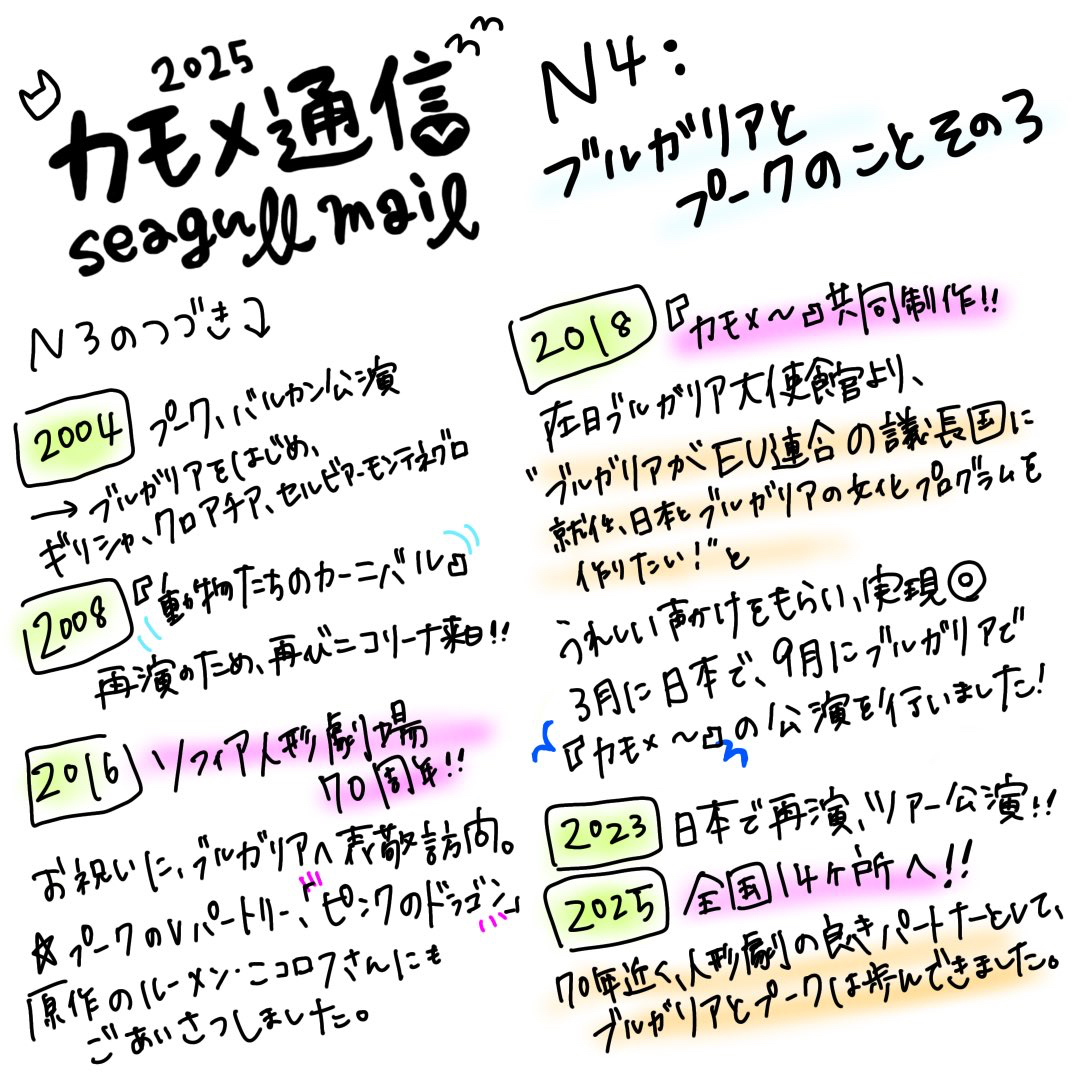 2025
カモメ通信
seagull mail
N3のつづき
2004 プーク、バルカン公演
→ ブルガリアをはじめ、
ギリシャ、クロアチア、セルビア・モンテネグロ
2008 『動物たちのカーニバル』
再演のため、再びニコリーナ来日!!
2016 ソフィア人形劇場
70周年!!
お祝いに、ブルガリアへ表敬訪問。
☆プークのレパートリー、『ピンクのドラゴン』
原作のルーメン・ニコロフさんにも
ごあいさつしました。
N4:
ブルガリアと
プークのこと その3
2018 『カモメ〜』共同制作!!
在日ブルガリア大使館より、
"ブルガリアがEU連合の議長国に
就任、日本とブルガリアの文化プログラムを
作りたい!"と
うれしい声かけをもらい、実現◎
3月に日本で、9月にブルガリアで
『カモメ〜』の公演を行いました!
2023 日本で再演、ツアー公演!!
2025 全国14ヶ所へ!!
70年近く、人形劇の良きパートナーとして、
ブルガリアとプークは歩んできました。